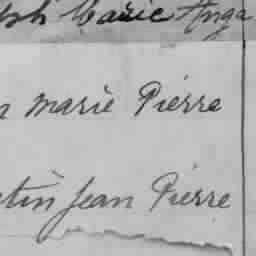 Marie Anga
Marie Pierre
tin Jean Pierre